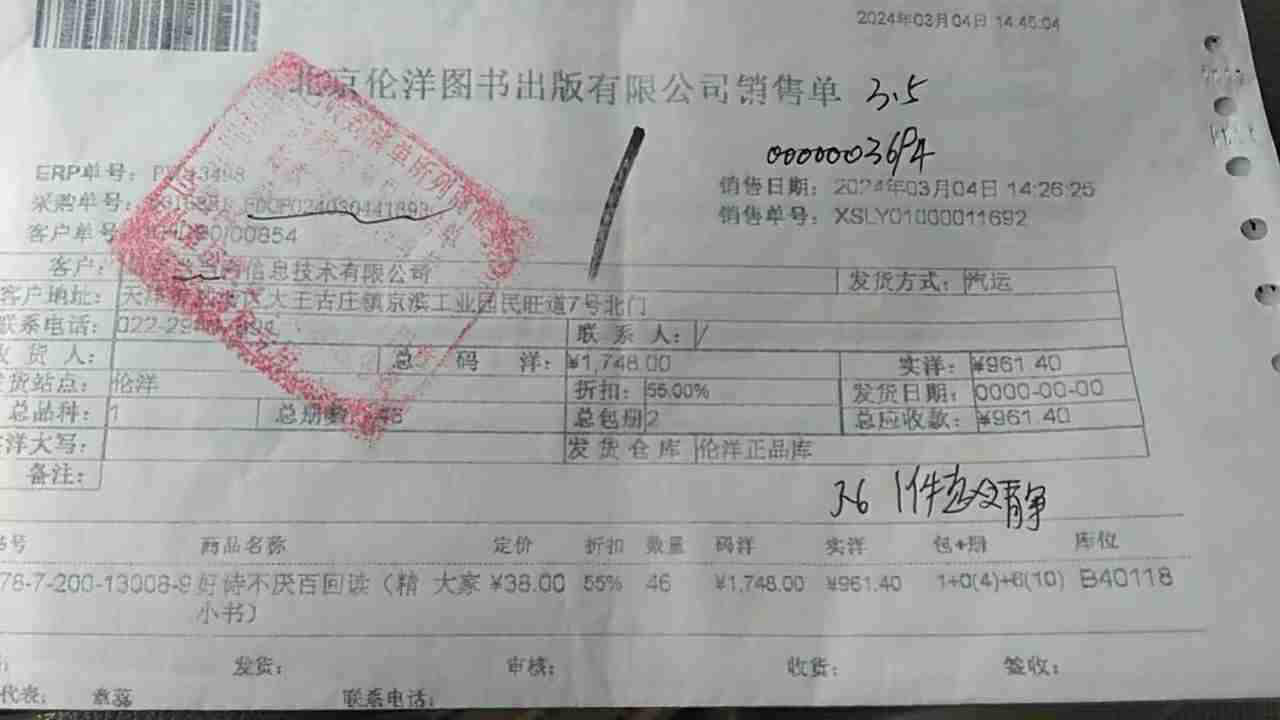 2024年03月04日 14:45:04
北京伦洋图书出版有限公司销售单 3.5
0000003694
ERP单号:
销售日期: 2024年03月04日 14:26:25
采购单号:
销售单号: XSLY01000011692
客户单号 00854
客户: 信息技术有限公司 发货方式: 汽运
客户地址: 天津 大王古庄镇京滨工业园民旺道7号北门
联系电话: 022-29 联 系 人: /
收 货 人: 总 码 洋: ¥1,748.00 实洋: ¥961.40
发货站点: 伦洋 折扣: 55.00% 发货日期: 0000-00-00
总品种: 1 总册数: 46 总包册 2 总应收款: ¥961.40
洋大写: 发 货 仓 库 伦洋正品库
备注:
3-6 1件 文静
书号 商品名称 定价 折扣 数量 码洋 实洋 包+册 库位
78-7-200-13008-9 好诗不厌百回读（精 大家 ¥38.00 55% 46 ¥1,748.00 ¥961.40 1+0(4)+6(10) B40118
小书）
发货: 审核: 收货: 签收:
代表: 联系电话: